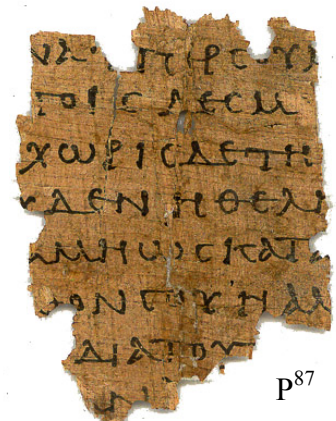 ΝΑ ΥΠΕΡ ϹΟΥ
ΤΟΙϹ ΔΕϹΜ
ΧΩΡΙϹ ΔΕ ΤΗ
ΥΔΕΝ ΗΘΕΛΗ
ΝΑ ΜΗ ΩϹ ΚΑΤΑ
ΟΝ ϹΟΥ Η ΑΛ
ΔΙΑ ΤΟΥ
Ν
P⁸⁷